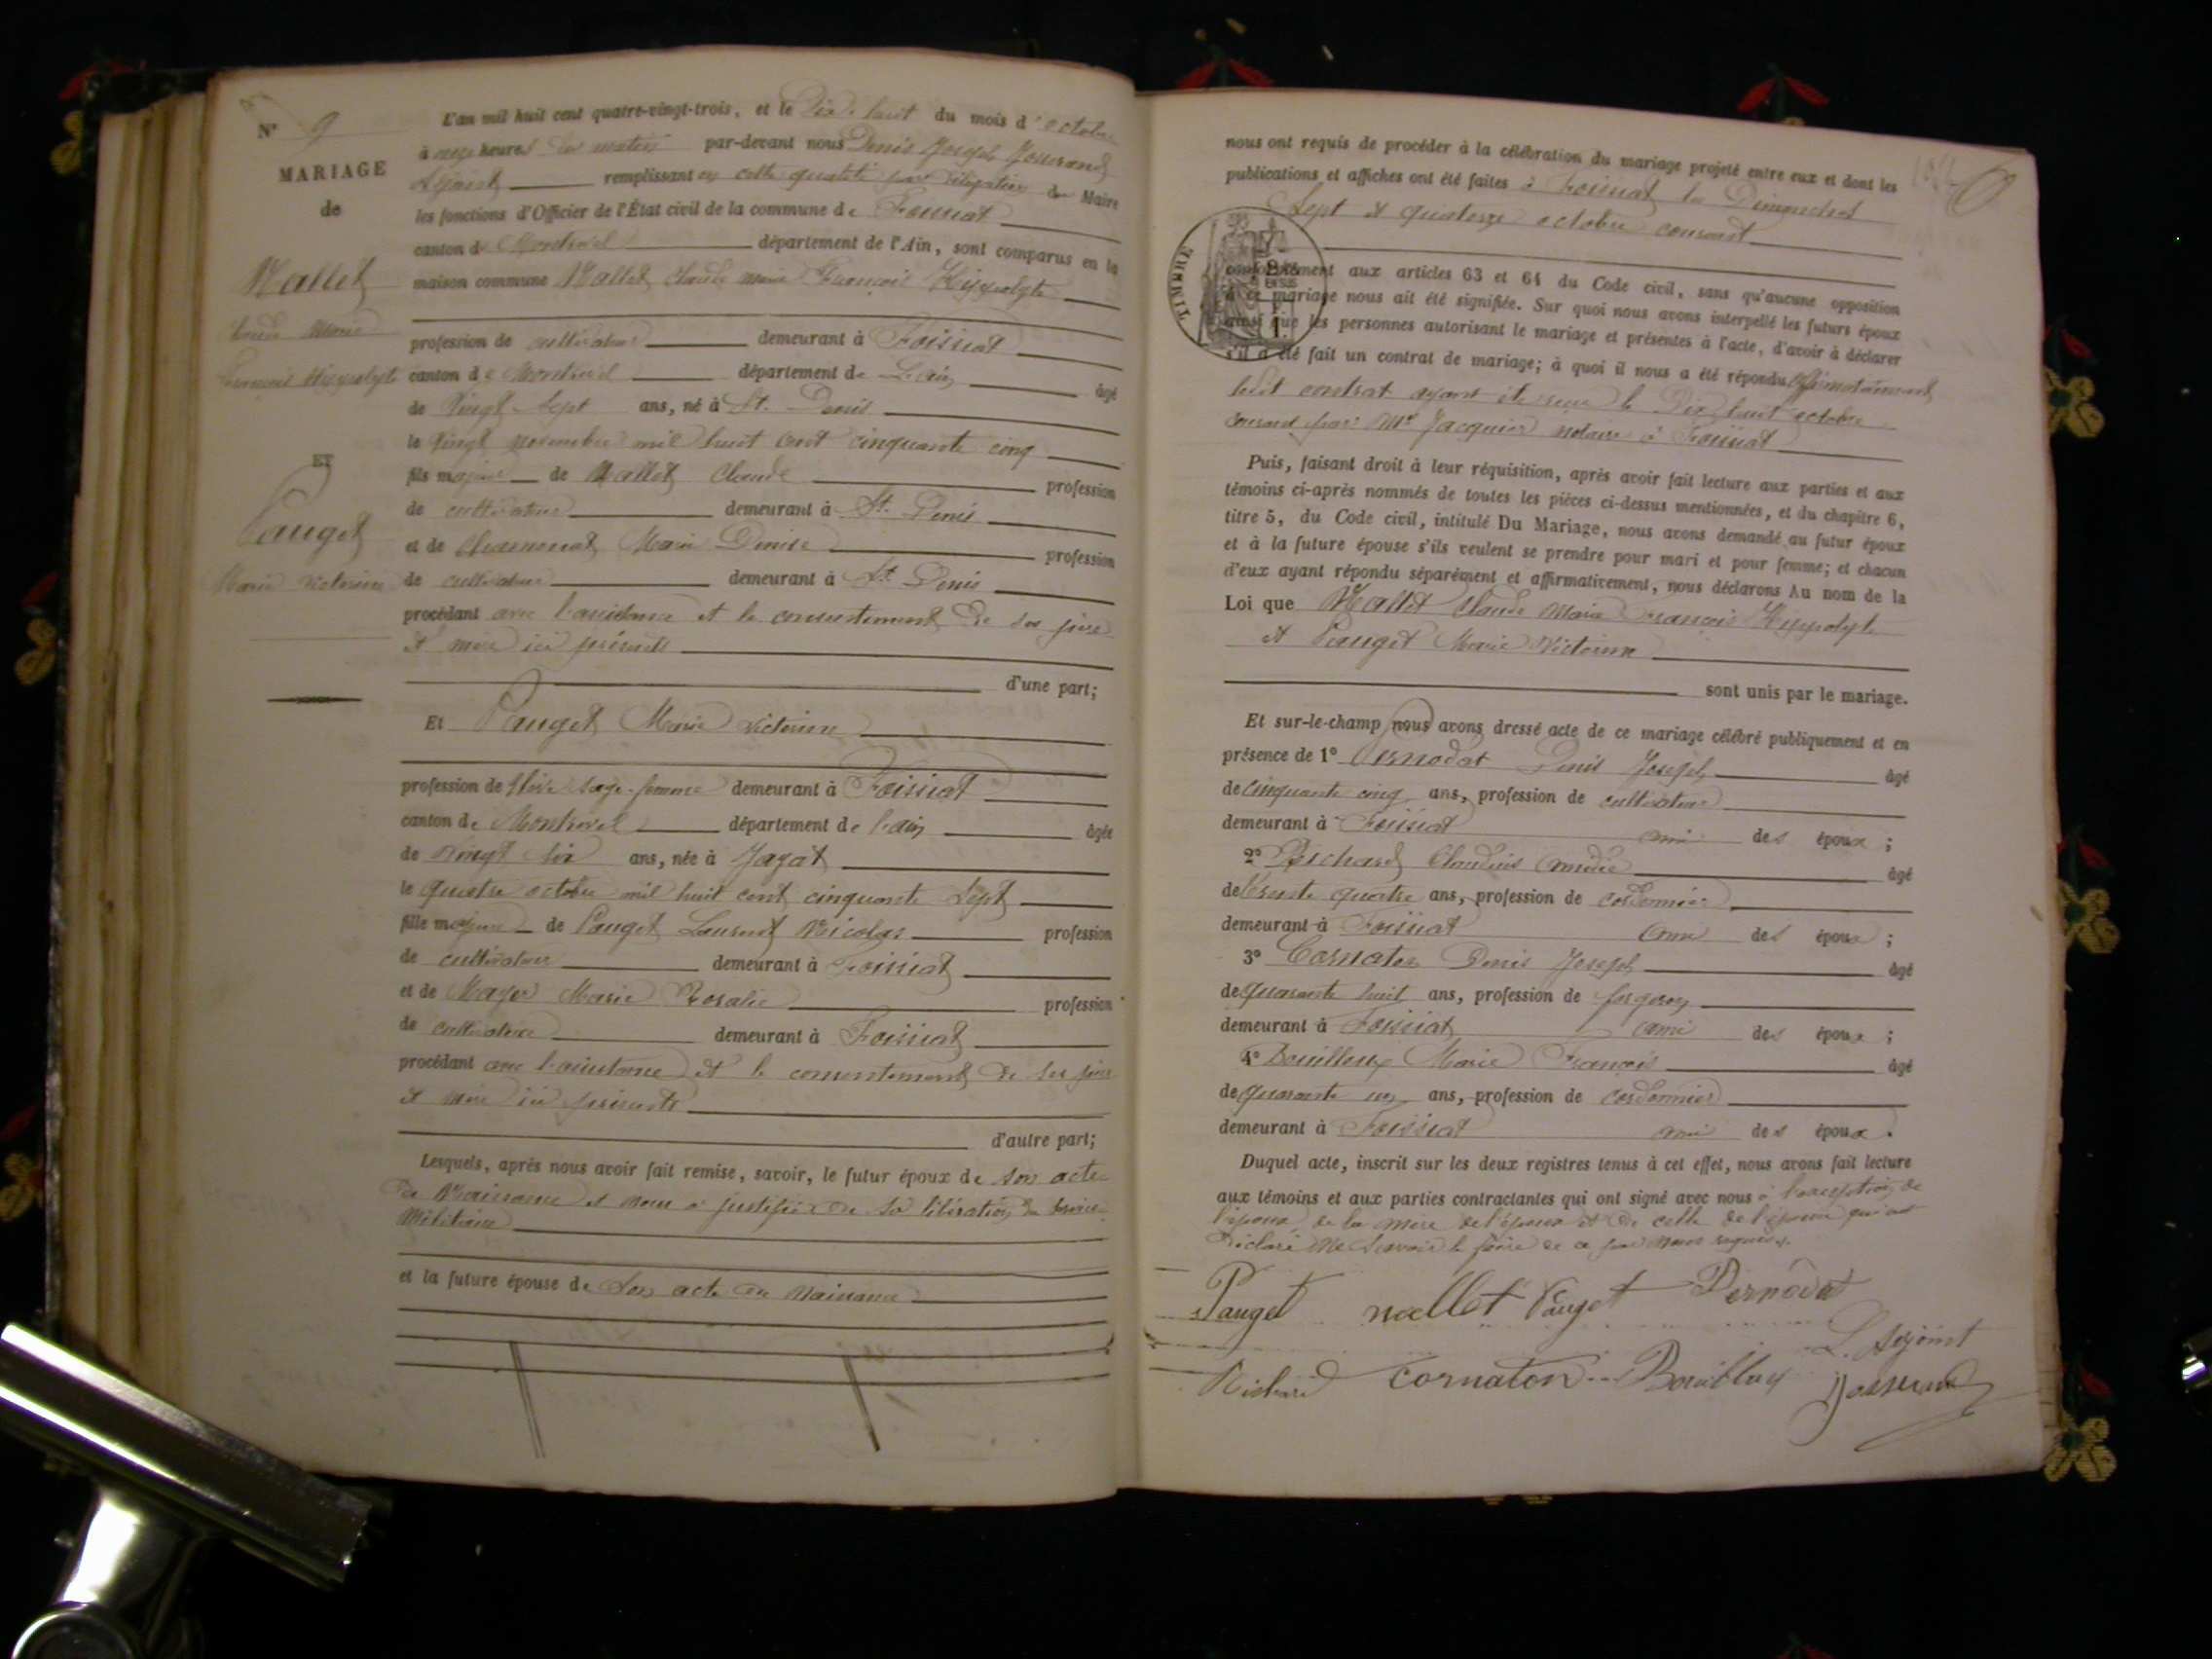 N° 9
MARIAGE
de
Nallet
Claude Marie
François Hippolyte
ET
Pauget
Marie Victorine
L'an mil huit cent quatre-vingt-trois, et le Dix-huit du mois d'octobre
à onze heures du matin par-devant nous Denis Joseph Josserand
Adjoint remplissant en cette qualité par délégation du Maire
les fonctions d'Officier de l'État civil de la commune de Foissiat
canton de Montrevel département de l'Ain, sont comparus en la
maison commune Nallet Claude Marie François Hippolyte
profession de cultivateur demeurant à Foissiat
canton de Montrevel département de L'ain âgé
de Vingt-Sept ans, né à St. Denis
le Vingt novembre mil huit cent cinquante cinq
fils majeur de Nallet Claude profession
de cultivateur demeurant à St. Denis
et de Marie Denise profession
de cultivateur demeurant à St. Denis
procédant avec l'assistance et le consentement de ses père
et mère ici présents
d'une part;
Et Pauget Marie Victorine
profession de Elève sage-femme demeurant à Foissiat
canton de Montrevel département de l'ain âgée
de Vingt Six ans, née à Jayat
le quatre octobre mil huit cent cinquante Sept
fille majeure de Pauget Laurent Nicolas profession
de cultivateur demeurant à Foissiat
et de Marie Rosalie profession
de cultivatrice demeurant à Foissiat
procédant avec l'assistance et le consentement de ses père
et mère ici présents
d'autre part;
Lesquels, après nous avoir fait remise, savoir, le futur époux de son acte
de Naissance et nous a justifié de sa libération du service
Militaire
et la future épouse de Son acte de Naissance
nous ont requis de procéder à la célébration du mariage projeté entre eux et dont les
publications et affiches ont été faites à Foissiat les Dimanches
Sept et quatorze octobre courant
TIMBRE
conformément aux articles 63 et 64 du Code civil, sans qu'aucune opposition
à ce mariage nous ait été signifiée. Sur quoi nous avons interpellé les futurs époux
ainsi que les personnes autorisant le mariage et présentes à l'acte, d'avoir à déclarer
s'il a été fait un contrat de mariage; à quoi il nous a été répondu affirmativement
ledit contrat ayant été reçu le Dix huit octobre
courant par Me Jacquier notaire à Foissiat
Puis, faisant droit à leur réquisition, après avoir fait lecture aux parties et aux
témoins ci-après nommés de toutes les pièces ci-dessus mentionnées, et du chapitre 6,
titre 5, du Code civil, intitulé Du Mariage, nous avons demandé au futur époux
et à la future épouse s'ils veulent se prendre pour mari et pour femme; et chacun
d'eux ayant répondu séparément et affirmativement, nous déclarons Au nom de la
Loi que Nallet Claude Marie François Hippolyte
et Pauget Marie Victorine
sont unis par le mariage.
Et sur-le-champ nous avons dressé acte de ce mariage célébré publiquement et en
présence de 1° Pernodat Denis Joseph âgé
de cinquante cinq ans, profession de cultivateur
demeurant à Foissiat ami des époux ;
2° Claudius âgé
de trente quatre ans, profession de cordonnier
demeurant à Foissiat ami des époux ;
3° Cornaton Denis Joseph âgé
de quarante huit ans, profession de forgeron
demeurant à Foissiat ami des époux ;
4° Bouilloux Marie François âgé
de quarante un ans, profession de cordonnier
demeurant à Foissiat ami des époux .
Duquel acte, inscrit sur les deux registres tenus à cet effet, nous avons fait lecture
aux témoins et aux parties contractantes qui ont signé avec nous à l'exception de
de la mère de l'époux et de celle de l'épouse qui ont
déclaré ne savoir le faire de ce par nous requis.
Pauget nallet Pauget Pernodat
L. Adjoint
Cornaton Josserand